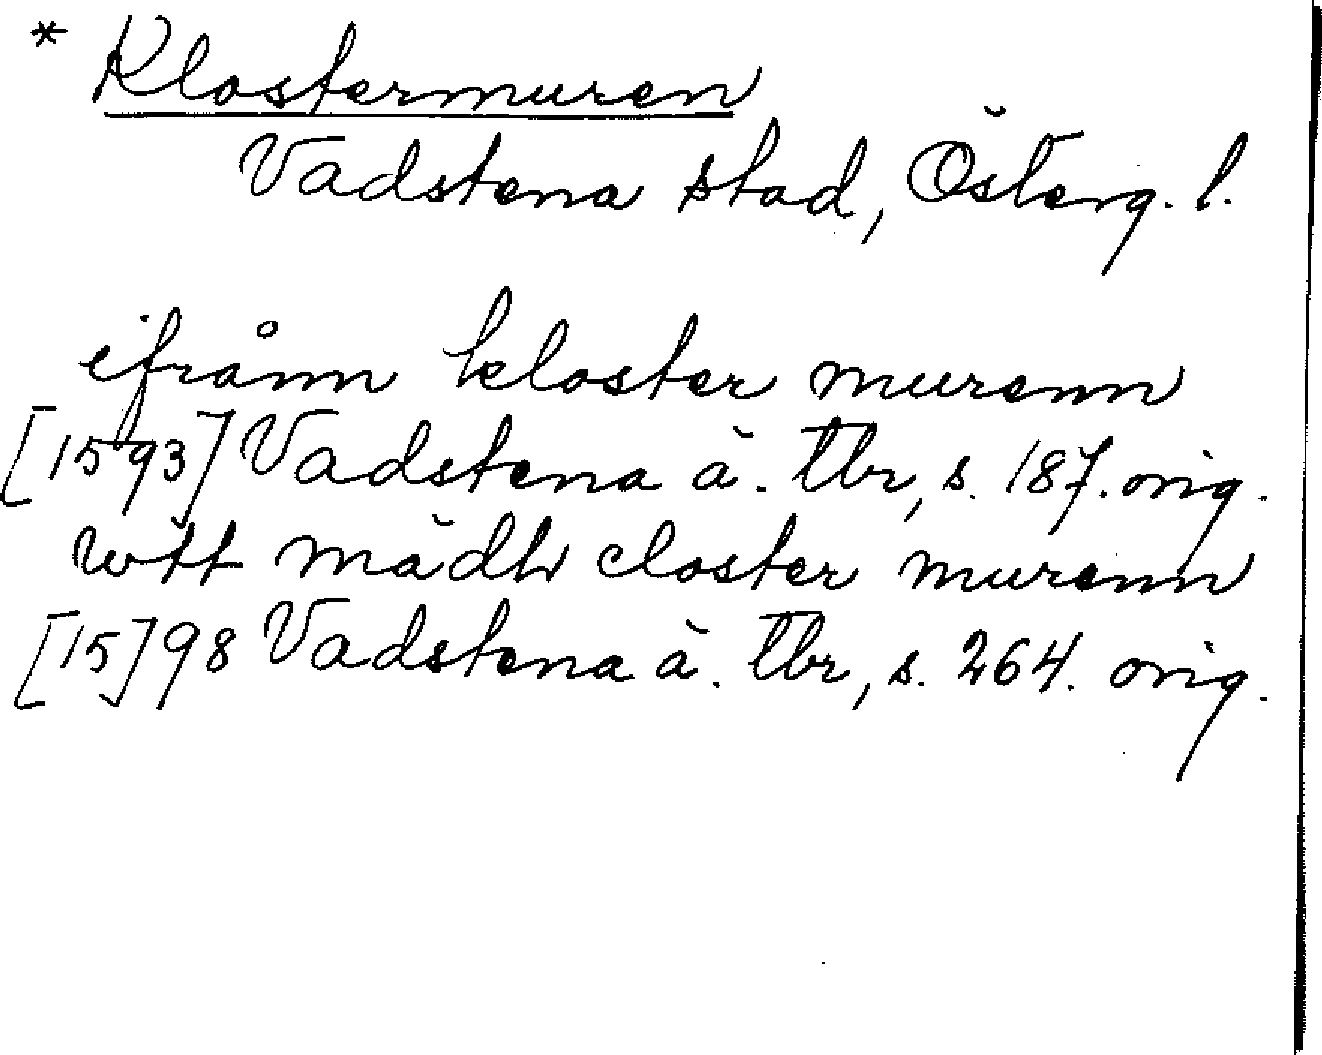 * Klostermuren
Vadstena stad, Österg. l.
ifrånn kloster murenn
[1593] Vadstena ä. tbr, s. 187. orig.
wtt mädh closter murenn
[15]98 Vadstena ä. tbr, s. 264. orig.